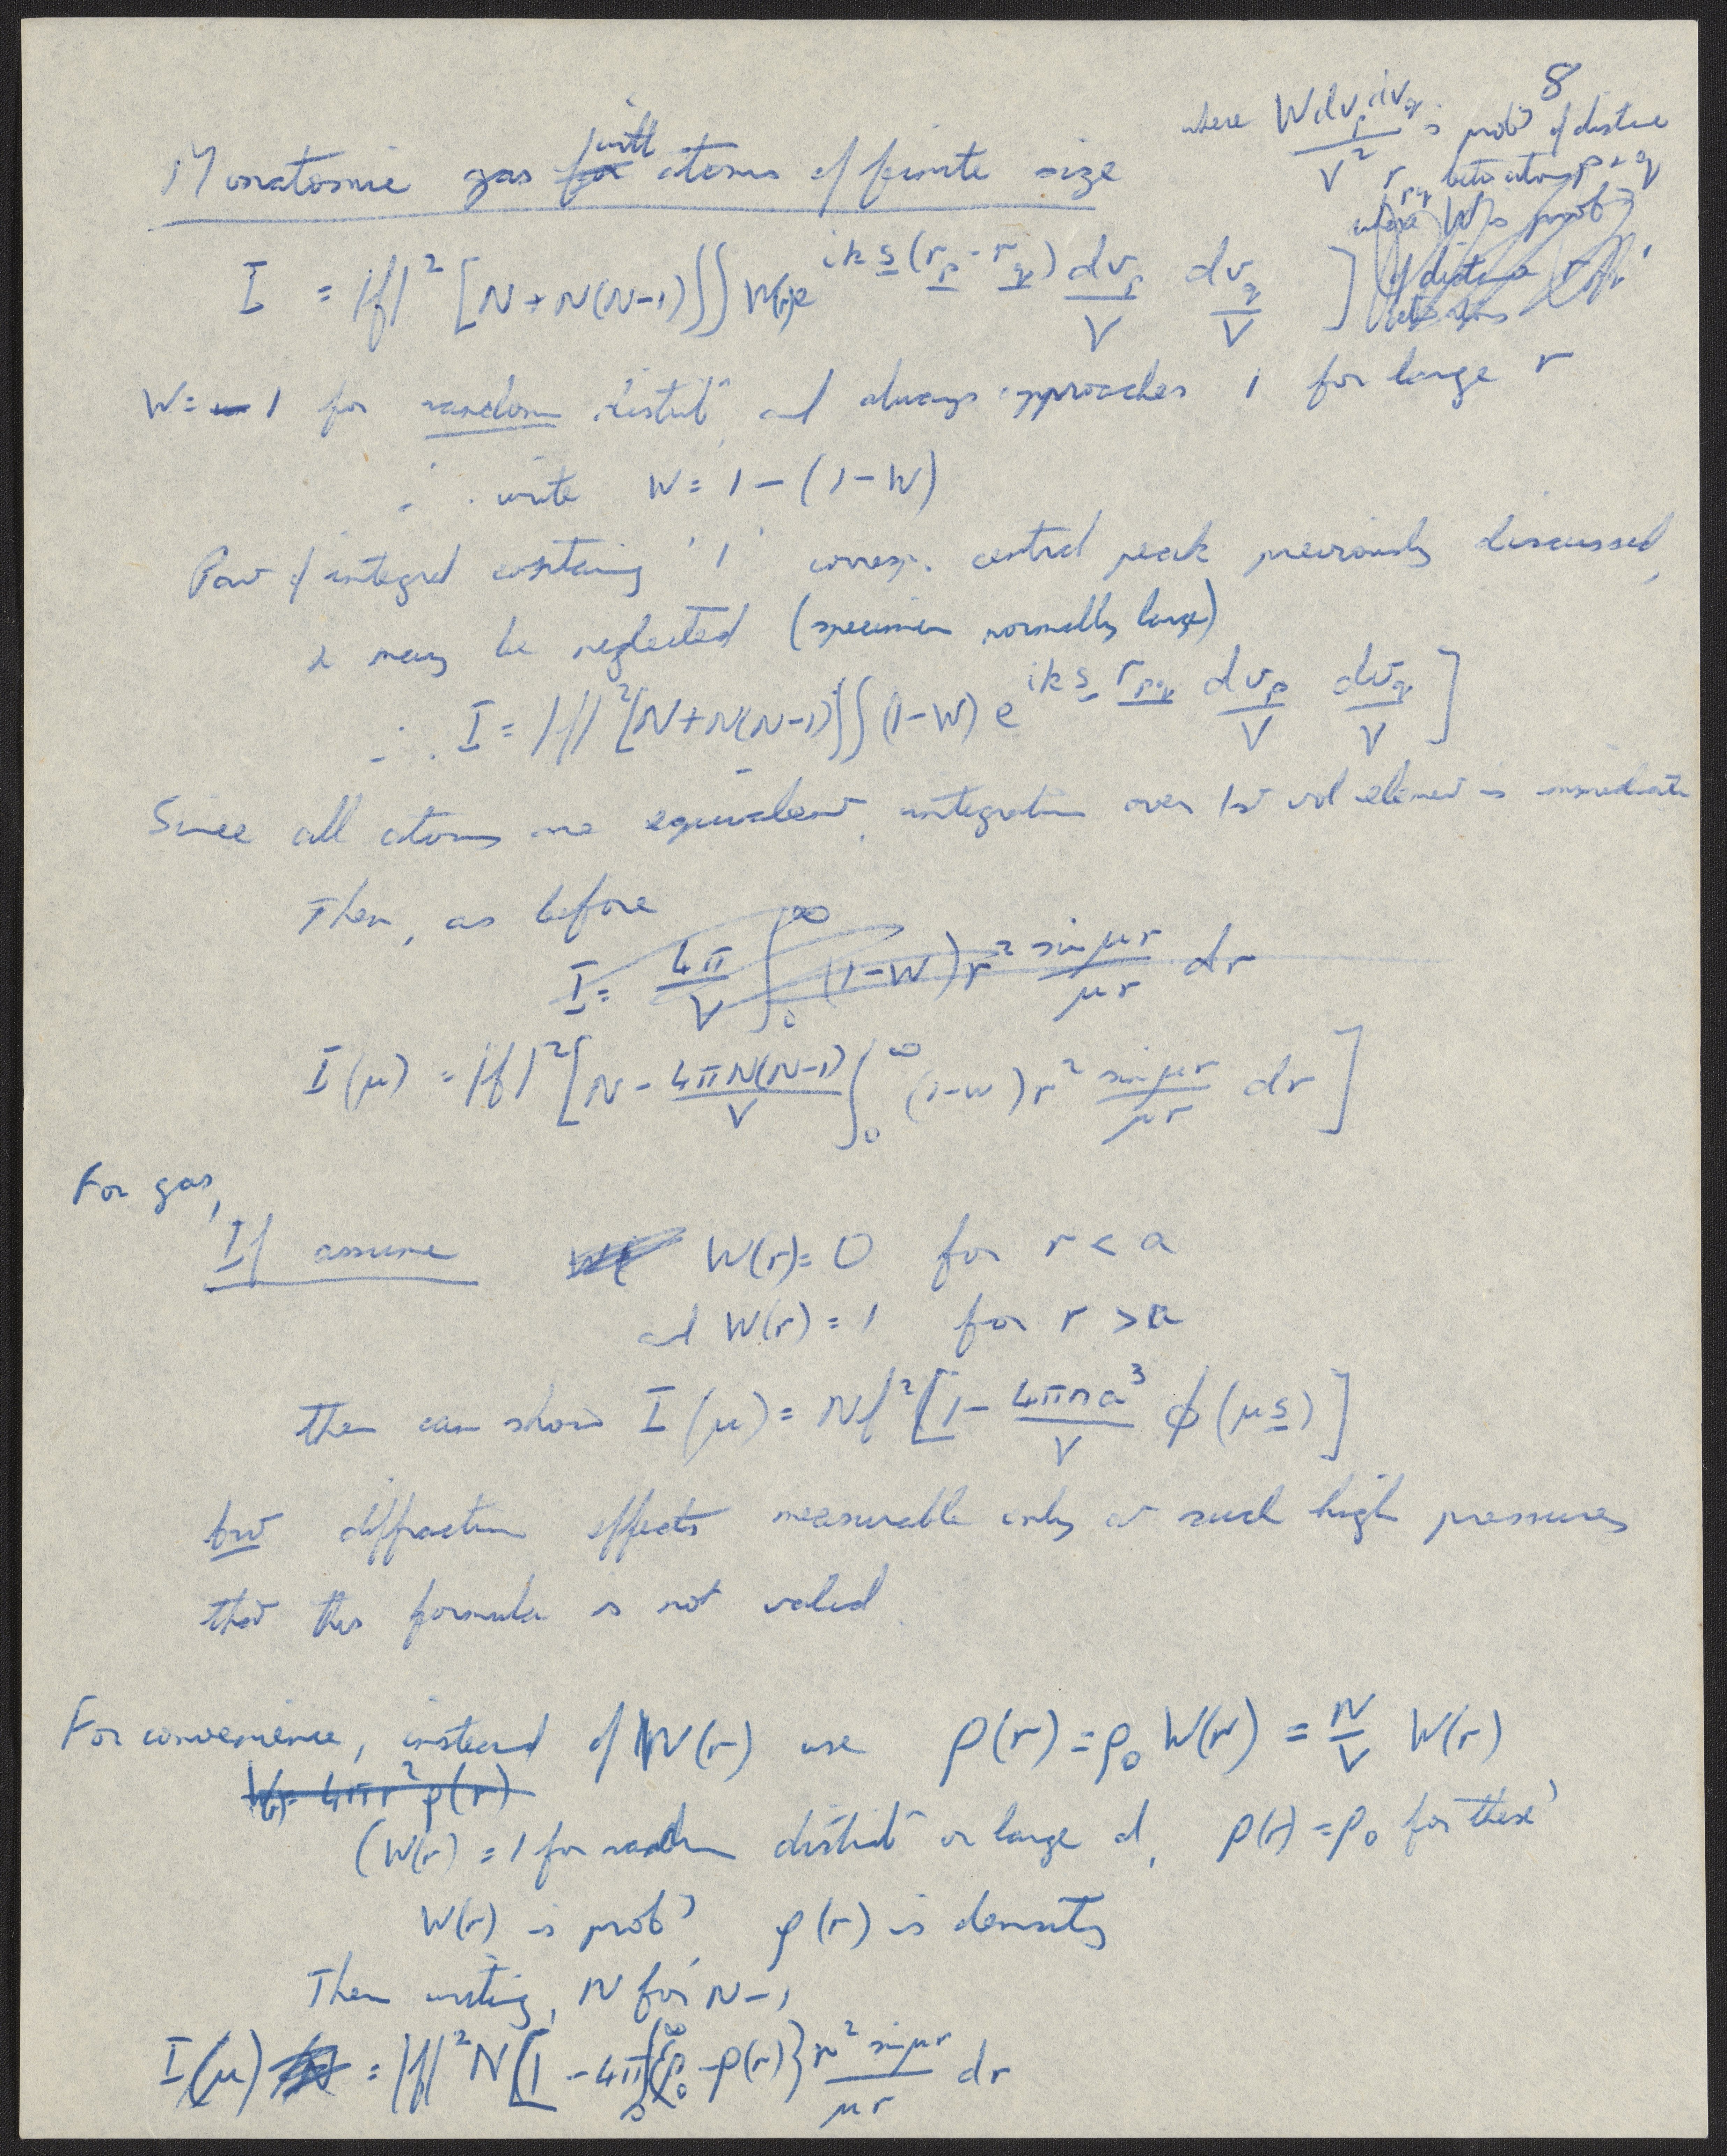 8
Monatomic gas for with atoms of finite size
where W dv_p dv_q / V² is prob^y of distance
r_pq betw atoms p & q
where W is prob^y
of distance
I = |f|² [N + N(N-1) ∫∫ W(r) e^{ik s (r_p - r_q)} dv_p/V dv_q/V ]
W = 1 for random distrib^n and always approaches 1 for large r
∴ write W = 1 - (1-W)
Part of integral containing '1' corresp. central peak previously discussed,
& may be neglected (specimen normally large)
∴ I = |f|² [N + N(N-1) ∫∫ (1-W) e^{ik s r_pq} dv_p/V dv_q/V ]
Since all atoms are equivalent, integration over 1st vol element is immediate
Then, as before
I = 4π/V ∫_0^∞ (1-W) r² sin μr / μr dr
I(μ) = |f|² [N - 4πN(N-1)/V ∫_0^∞ (1-W) r² sin μr / μr dr ]
For gas,
If assume W( W(r) = 0 for r < a
and W(r) = 1 for r > a
then can show I(μ) = Nf² [1 - 4πna³/V φ(μs) ]
but diffraction effects measurable only at such high pressures
that this formula is not valid.
For convenience, instead of W(r) use ρ(r) = ρ₀ W(r) = N/V W(r)
W(r) = 4πr² ρ(r)
(W(r) = 1 for random distrib^n or large d, ρ(r) = ρ₀ for these)
W(r) is prob^y, ρ(r) is density
Then writing, N for N-1
I(μ) = |f|² N [1 - 4π ∫_0^∞ {ρ₀ - ρ(r)} r² sin μr / μr dr